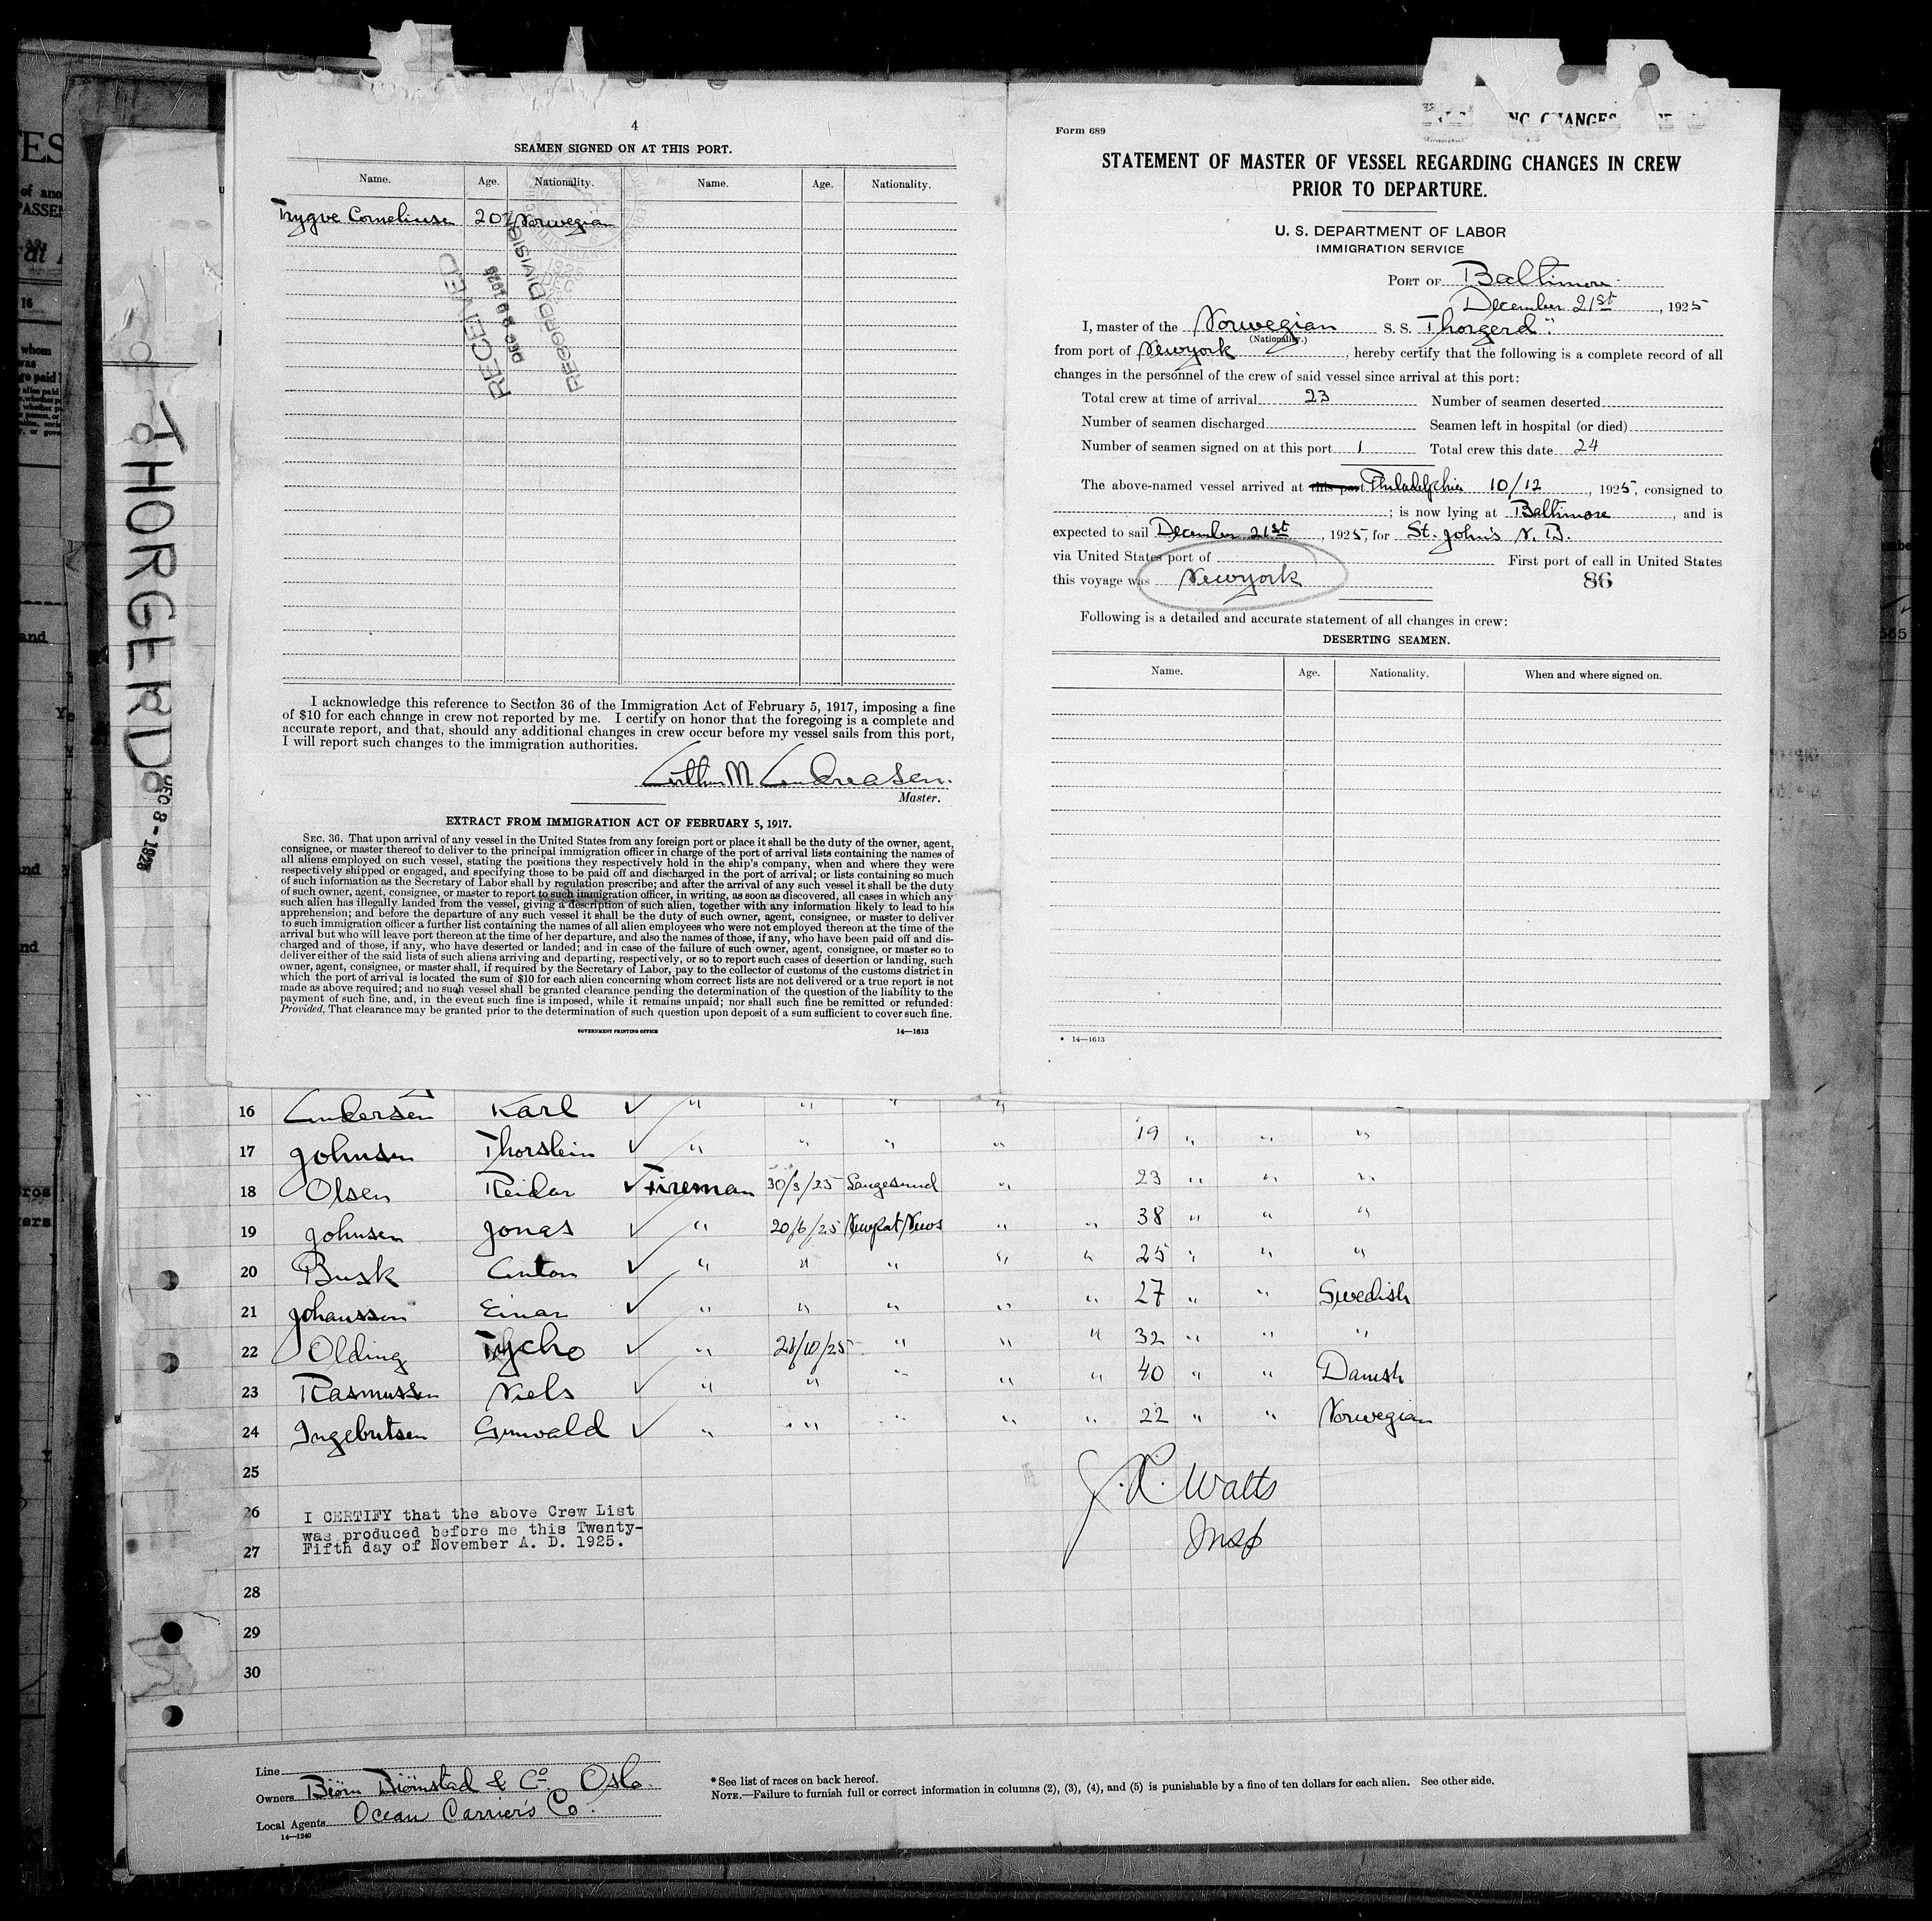 4
SEAMEN SIGNED ON AT THIS PORT.
Name. Age. Nationality. Name. Age. Nationality.
Trygve Corneliusen 20 Norwegian
RECEIVED
DEC 29 1925
RECORD DIVISION
I acknowledge this reference to Section 36 of the Immigration Act of February 5, 1917, imposing a fine
of $10 for each change in crew not reported by me. I certify on honor that the foregoing is a complete and
accurate report, and that, should any additional changes in crew occur before my vessel sails from this port,
I will report such changes to the immigration authorities.
Arthur M Andreasen.
Master.
EXTRACT FROM IMMIGRATION ACT OF FEBRUARY 5, 1917.
SEC. 36. That upon arrival of any vessel in the United States from any foreign port or place it shall be the duty of the owner, agent,
consignee, or master thereof to deliver to the principal immigration officer in charge of the port of arrival lists containing the names of
all aliens employed on such vessel, stating the positions they respectively hold in the ship's company, when and where they were
respectively shipped or engaged, and specifying those to be paid off and discharged in the port of arrival; or lists containing so much
of such information as the Secretary of Labor shall by regulation prescribe; and after the arrival of any such vessel it shall be the duty
of such owner, agent, consignee, or master to report to such immigration officer, in writing, as soon as discovered, all cases in which any
such alien has illegally landed from the vessel, giving a description of such alien, together with any information likely to lead to his
apprehension; and before the departure of any such vessel it shall be the duty of such owner, agent, consignee, or master to deliver
to such immigration officer a further list containing the names of all alien employees who were not employed thereon at the time of the
arrival but who will leave port thereon at the time of her departure, and also the names of those, if any, who have been paid off and dis-
charged and of those, if any, who have deserted or landed; and in case of the failure of such owner, agent, consignee, or master so to
deliver either of the said lists of such aliens arriving and departing, respectively, or so to report such cases of desertion or landing, such
owner, agent, consignee, or master shall, if required by the Secretary of Labor, pay to the collector of customs of the customs district in
which the port of arrival is located the sum of $10 for each alien concerning whom correct lists are not delivered or a true report is not
made as above required; and no such vessel shall be granted clearance pending the determination of the question of the liability to the
payment of such fine, and, in the event such fine is imposed, while it remains unpaid; nor shall such fine be remitted or refunded:
Provided, That clearance may be granted prior to the determination of such question upon deposit of a sum sufficient to cover such fine.
GOVERNMENT PRINTING OFFICE 14—1613
Form 689
STATEMENT OF MASTER OF VESSEL REGARDING CHANGES IN CREW
PRIOR TO DEPARTURE.
U. S. DEPARTMENT OF LABOR
IMMIGRATION SERVICE
PORT OF Baltimore.
December 21st, 1925
I, master of the Norwegian S. S. Thorgerd"
(Nationality.)
from port of Newyork, hereby certify that the following is a complete record of all
changes in the personnel of the crew of said vessel since arrival at this port:
Total crew at time of arrival 23 Number of seamen deserted
Number of seamen discharged Seamen left in hospital (or died)
Number of seamen signed on at this port 1 Total crew this date 24
The above-named vessel arrived at this port Philadelphia 10/12, 1925, consigned to
; is now lying at Baltimore, and is
expected to sail December 21st, 1925, for St. John's N. B.
via United States port of First port of call in United States
this voyage was Newyork 86
Following is a detailed and accurate statement of all changes in crew:
DESERTING SEAMEN.
Name. Age. Nationality. When and where signed on.
14—1613
THORGERD
DEC 8 - 1925
16 Andersen Karl ✓ " " " "
17 Johnsen Thorstein ✓ " " " " 19 " " "
18 Olsen Reidar ✓ Fireman 30/3/25 Langesund " 23 " " "
19 Johnsen Jonas ✓ " 20/6/25 Newport News " " 38 " " "
20 Busk Anton ✓ " " " " " 25 " " "
21 Johansson Einar ✓ " " " " " 27 " " Swedish
22 Olding Tycho ✓ " 28/10/25 " " " 32 " " "
23 Rasmussen Niels ✓ " " " " " 40 " " Danish
24 Ingebritsen Gunvald ✓ " " " " " 22 " " Norwegian
25
26
27
28
29
30
I CERTIFY that the above Crew List
was produced before me this Twenty-
Fifth day of November A. D. 1925.
J. R. Watts
Insp
Line
Owners Biörn Biörnstad & Co. Oslo.
Local Agents Ocean Carrier's Co.
14—1240
* See list of races on back hereof.
NOTE.—Failure to furnish full or correct information in columns (2), (3), (4), and (5) is punishable by a fine of ten dollars for each alien. See other side.